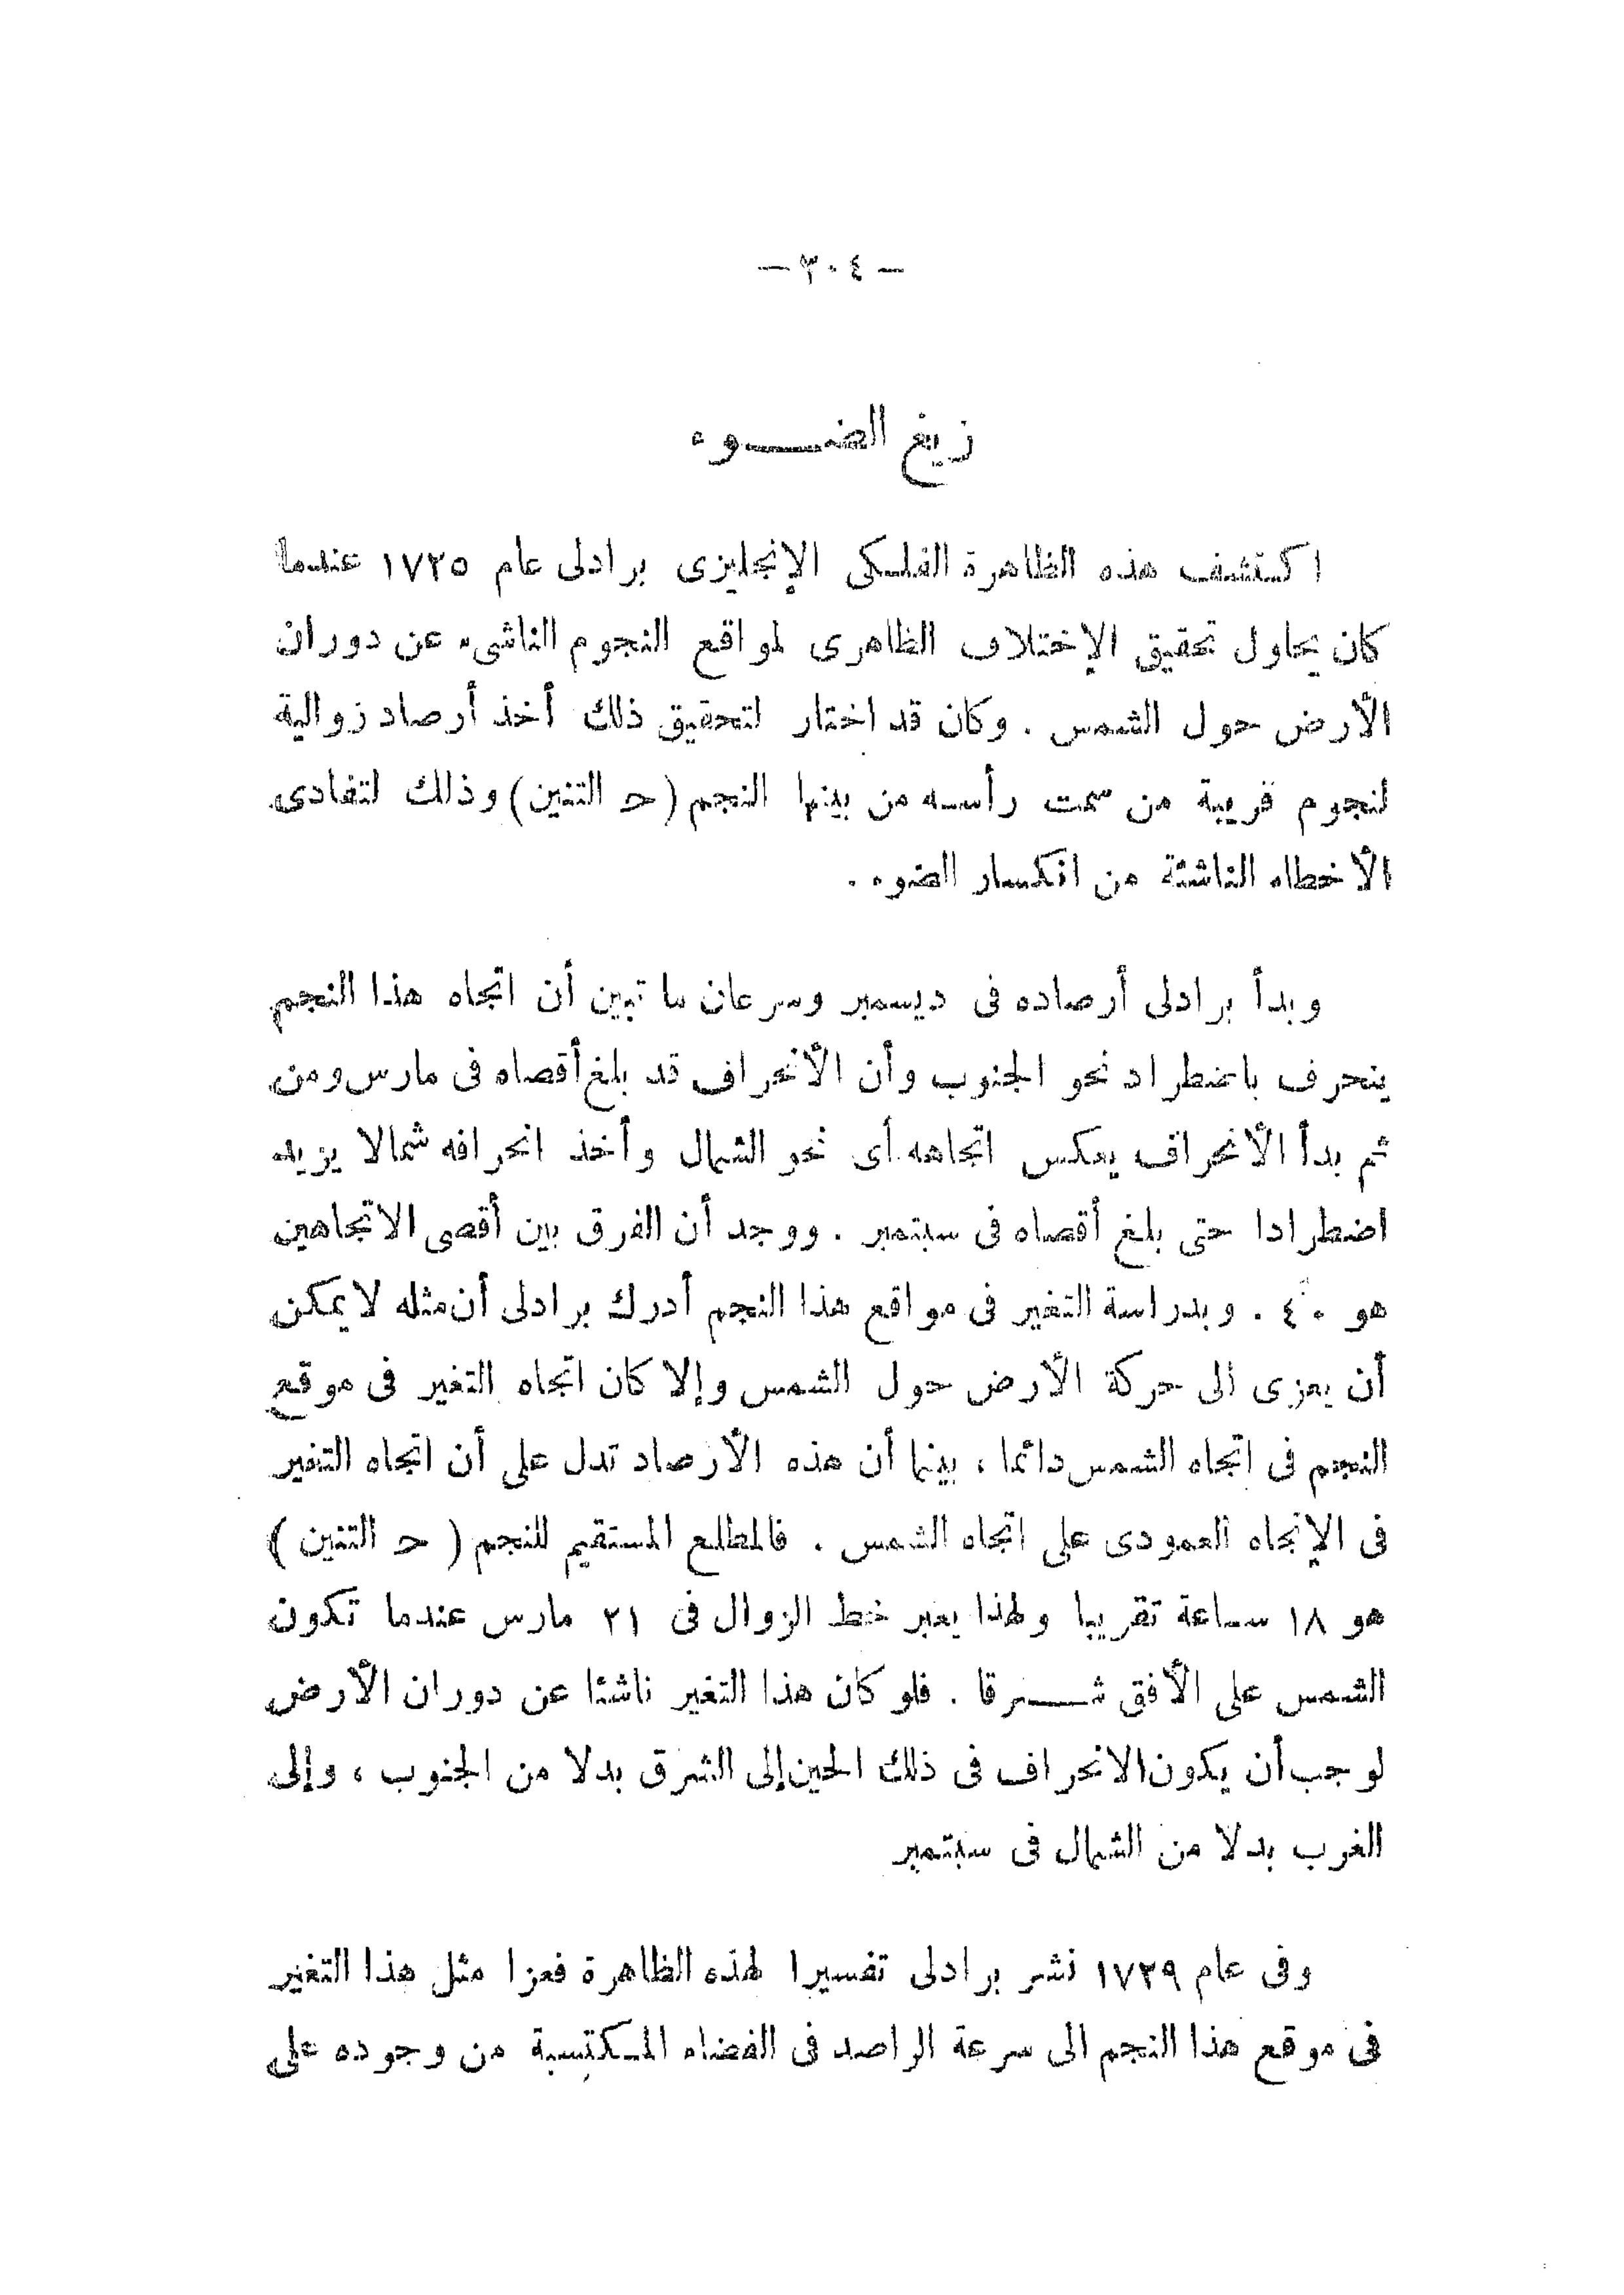 — ٣٠٤ —
زيغ الضـــوء
اكتشف هذه الظاهرة الفلكى الإنجليزى برادلى عام ١٧٢٥ عندما
كان يحاول تحقيق الإختلاف الظاهرى لمواقع النجوم الناشىء عن دوران
الأرض حول الشمس . وكان قد اختار لتحقيق ذلك أخذ أرصاد زوالية
لنجوم قريبة من سمت رأسه من بينها النجم (حـ التنين) وذلك لتفادى
الأخطاء الناشئة من انكسار الضوء .
وبدأ برادلى أرصاده فى ديسمبر وسرعان ما تبين أن اتجاه هذا النجم
ينحرف باضطراد نحو الجنوب وأن الأنحراف قد بلغ أقصاه فى مارس ومن
ثم بدأ الأنحراف يعكس اتجاهه أى نحو الشمال وأخذ انحرافه شمالا يزيد
اضطرادا حتى بلغ أقصاه فى سبتمبر . ووجد أن الفرق بين أقصى الاتجاهين
هو ٤٠ً . وبدراسة التغير فى مواقع هذا النجم أدرك برادلى أن مثله لا يمكن
أن يعزى ألى حركة الأرض حول الشمس وإلا كان اتجاه التغير فى موقع
النجم فى اتجاه الشمس دائما ، بينما أن هذه الأرصاد تدل على أن اتجاه التغير
فى الإتجاه العمودى على اتجاه الشمس . فالمطلع المستقيم للنجم ( حـ التنين )
هو ١٨ ساعة تقريبا ولهذا يعبر خط الزوال فى ٢١ مارس عندما تكون
الشمس على الأفق شـــرقا . فلو كان هذا التغير ناشئا عن دوران الأرض
لوجب أن يكون الانحراف فى ذلك الحين إلى الشرق بدلا من الجنوب ، وإلى
الغرب بدلا من الشمال فى سبتمبر
وفى عام ١٧٢٩ نشر برادلى تفسيرا لهذه الظاهرة فعزا مثل هذا التغير
فى موقع هذا النجم الى سرعة الراصد فى الفضاء المكتسبة من وجوده على